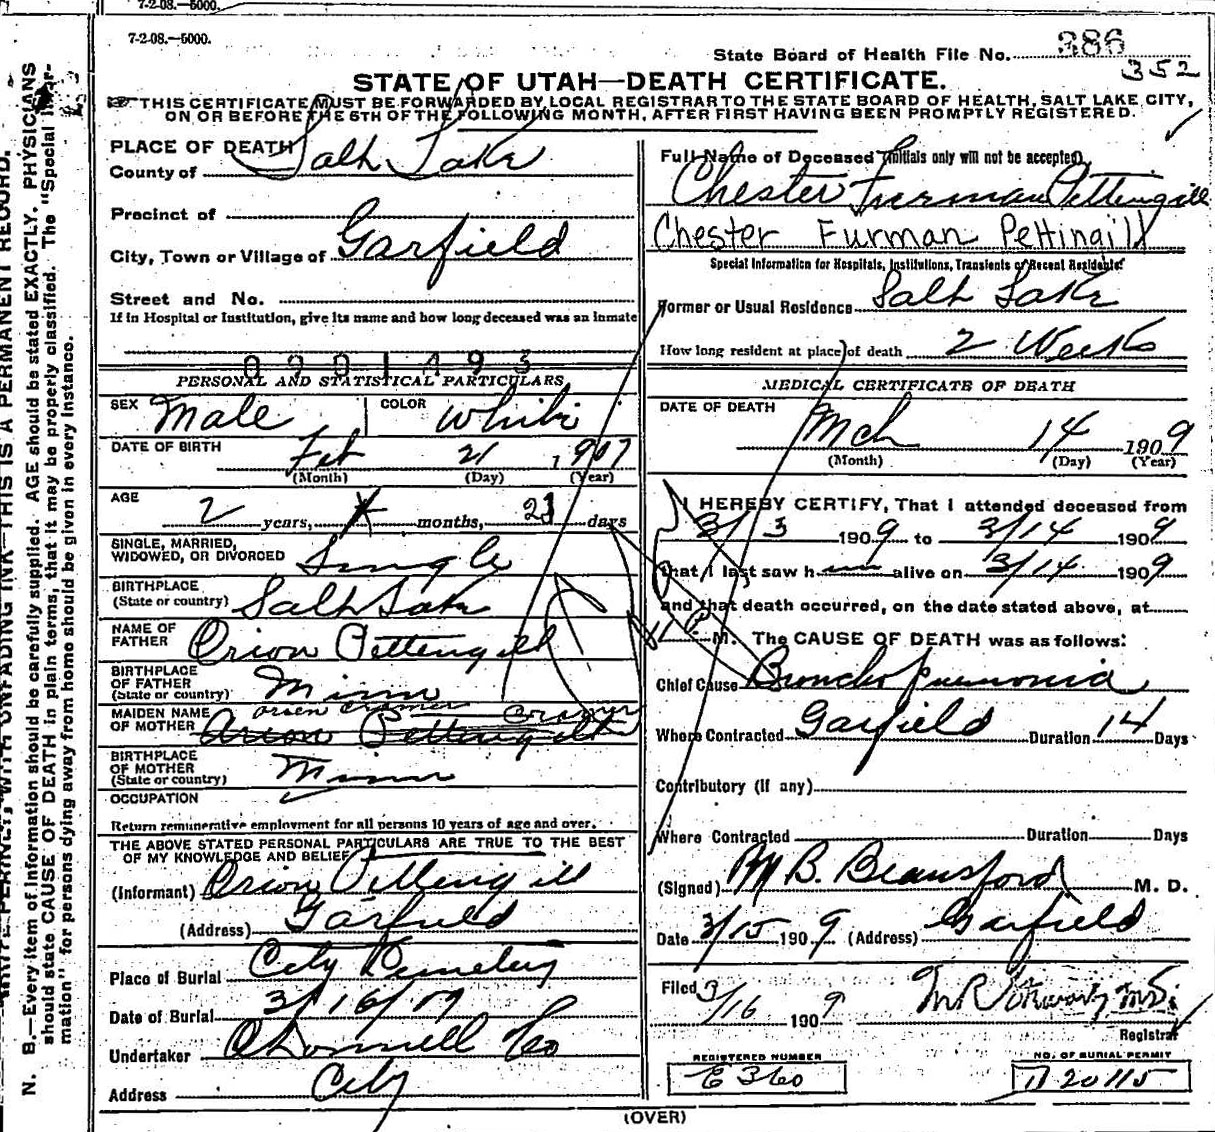 7-2-08.—5000.
7-2-08.—5000.
State Board of Health File No. 386
352
STATE OF UTAH—DEATH CERTIFICATE.
THIS CERTIFICATE MUST BE FORWARDED BY LOCAL REGISTRAR TO THE STATE BOARD OF HEALTH, SALT LAKE CITY,
ON OR BEFORE THE 5TH OF THE FOLLOWING MONTH, AFTER FIRST HAVING BEEN PROMPTLY REGISTERED.
PLACE OF DEATH
County of Salt Lake
Precinct of
City, Town or Village of Garfield
Street and No.
If in Hospital or Institution, give its name and how long deceased was an inmate
0901493
PERSONAL AND STATISTICAL PARTICULARS
SEX Male COLOR White
DATE OF BIRTH Feb 21, 1907
(Month) (Day) (Year)
AGE
2 years, months, 21 days
SINGLE, MARRIED,
WIDOWED, OR DIVORCED Single
BIRTHPLACE
(State or country) Salt Lake
NAME OF
FATHER Orion Pettengill
BIRTHPLACE
OF FATHER
(State or country) Minn
MAIDEN NAME
OF MOTHER Cramer
Arion Pettengill
BIRTHPLACE
OF MOTHER
(State or country) Minn
OCCUPATION
Return remunerative employment for all persons 10 years of age and over.
THE ABOVE STATED PERSONAL PARTICULARS ARE TRUE TO THE BEST
OF MY KNOWLEDGE AND BELIEF
(Informant) Orion Pettengill
(Address) Garfield
Place of Burial City Cemetery
Date of Burial 3/16/09
Undertaker O'Donnell Co
Address City
Full Name of Deceased (Initials only will not be accepted)
Chester Furman Pettingill
Chester Furman Pettingill
Special Information for Hospitals, Institutions, Transients or Recent Residents.
Former or Usual Residence Salt Lake
How long resident at place of death 2 Weeks
MEDICAL CERTIFICATE OF DEATH
DATE OF DEATH
Mch 14 1909
(Month) (Day) (Year)
I HEREBY CERTIFY, That I attended deceased from
3/3 1909 to 3/14 1909
that I last saw h im alive on 3/14 1909
and that death occurred, on the date stated above, at
M. The CAUSE OF DEATH was as follows:
Chief Cause Broncho pneumonia
Where Contracted Garfield Duration 14 Days
Contributory (if any)
Where Contracted Duration Days
(Signed) M B. Beansford M. D.
Date 3/15 1909 (Address) Garfield
Filed 3/16 1909
Registrar
REGISTERED NUMBER
E 360
NO. OF BURIAL PERMIT
D 20115
(OVER)
N. B.—Every item of information should be carefully supplied. AGE should be stated EXACTLY. PHYSICIANS
should state CAUSE OF DEATH in plain terms, that it may be properly classified. The "Special Infor-
mation" for persons dying away from home should be given in every instance.
WITH UNFADING INK—THIS IS A PERMANENT RECORD.